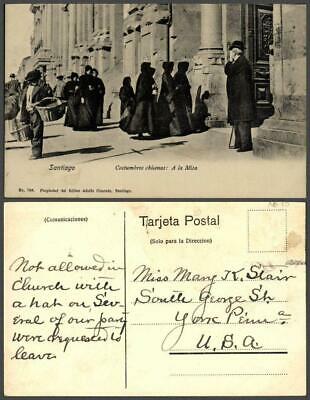 Santiago
Costumbres chilenas: A la Misa
No. 708. Propiedad del Editor Adolfo Conrads, Santiago.
Tarjeta Postal
(Comunicaciones)
(Solo para la Direccion)
Not allowed in
Church with
a hat on, Sev-
eral of our party
were requested to
leave.
Miss Mary K. Stair
South George St.
York Penna
U.S.A